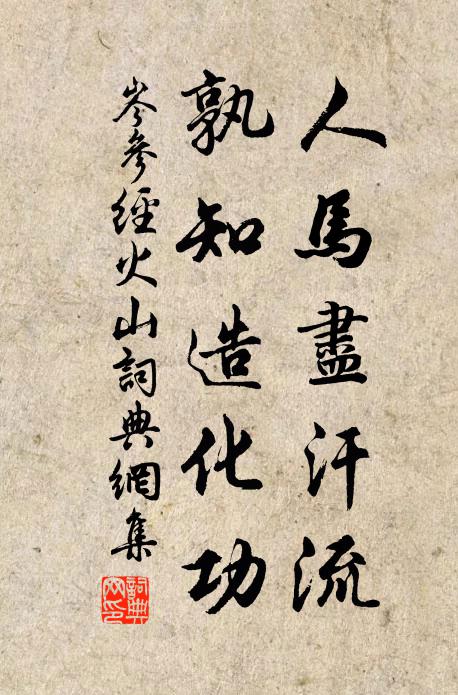 人馬盡汗流
孰知造化功
岑參經火山詞典網集